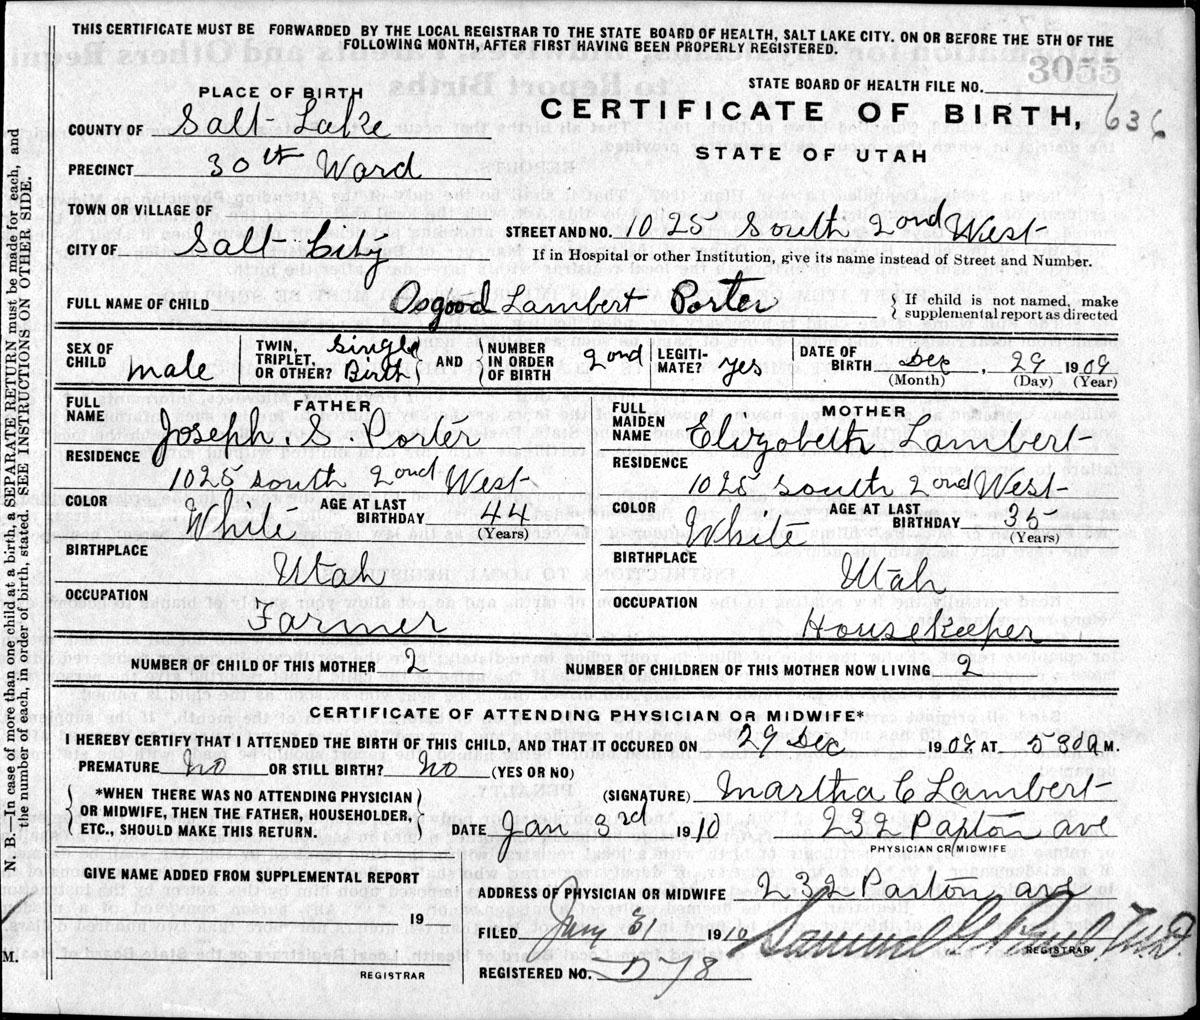 THIS CERTIFICATE MUST BE FORWARDED BY THE LOCAL REGISTRAR TO THE STATE BOARD OF HEALTH, SALT LAKE CITY. ON OR BEFORE THE 5TH OF THE
FOLLOWING MONTH, AFTER FIRST HAVING BEEN PROPERLY REGISTERED.
3055
STATE BOARD OF HEALTH FILE NO.
PLACE OF BIRTH
CERTIFICATE OF BIRTH, 636
STATE OF UTAH
COUNTY OF Salt Lake
PRECINCT 30th Ward
TOWN OR VILLAGE OF
CITY OF Salt City
STREET AND NO. 1025 South 2ond West
If in Hospital or other Institution, give its name instead of Street and Number.
FULL NAME OF CHILD Osgood Lambert Porter
{ If child is not named, make
supplemental report as directed
SEX OF CHILD male
TWIN, TRIPLET, OR OTHER? Single Birth
AND NUMBER IN ORDER OF BIRTH 2ond
LEGITIMATE? yes
DATE OF BIRTH Dec, 29 1909
(Month) (Day) (Year)
FATHER
FULL NAME Joseph. S. Porter
RESIDENCE
1025 South 2ond West
COLOR White AGE AT LAST BIRTHDAY 44
(Years)
BIRTHPLACE
Utah
OCCUPATION
Farmer
MOTHER
FULL MAIDEN NAME Elizabeth Lambert
RESIDENCE
1025 South 2ond West
COLOR White AGE AT LAST BIRTHDAY 35
(Years)
BIRTHPLACE
Utah
OCCUPATION
Housekeeper
NUMBER OF CHILD OF THIS MOTHER 2 NUMBER OF CHILDREN OF THIS MOTHER NOW LIVING 2
CERTIFICATE OF ATTENDING PHYSICIAN OR MIDWIFE*
I HEREBY CERTIFY THAT I ATTENDED THE BIRTH OF THIS CHILD, AND THAT IT OCCURED ON 29 Dec 190 AT 530 a M.
PREMATURE No OR STILL BIRTH? No (YES OR NO)
*WHEN THERE WAS NO ATTENDING PHYSICIAN
OR MIDWIFE, THEN THE FATHER, HOUSEHOLDER,
ETC., SHOULD MAKE THIS RETURN.
(SIGNATURE) Martha C Lambert
DATE Jan 3rd 1910 232 ave
PHYSICIAN OR MIDWIFE
GIVE NAME ADDED FROM SUPPLEMENTAL REPORT
19
REGISTRAR
ADDRESS OF PHYSICIAN OR MIDWIFE 232 ave
FILED Jany 1910 Samuel G. M.D.
REGISTRAR
REGISTERED NO.
N. B.—In case of more than one child at a birth, a SEPARATE RETURN must be made for each, and
the number of each, in order of birth, stated. SEE INSTRUCTIONS ON OTHER SIDE.
M.